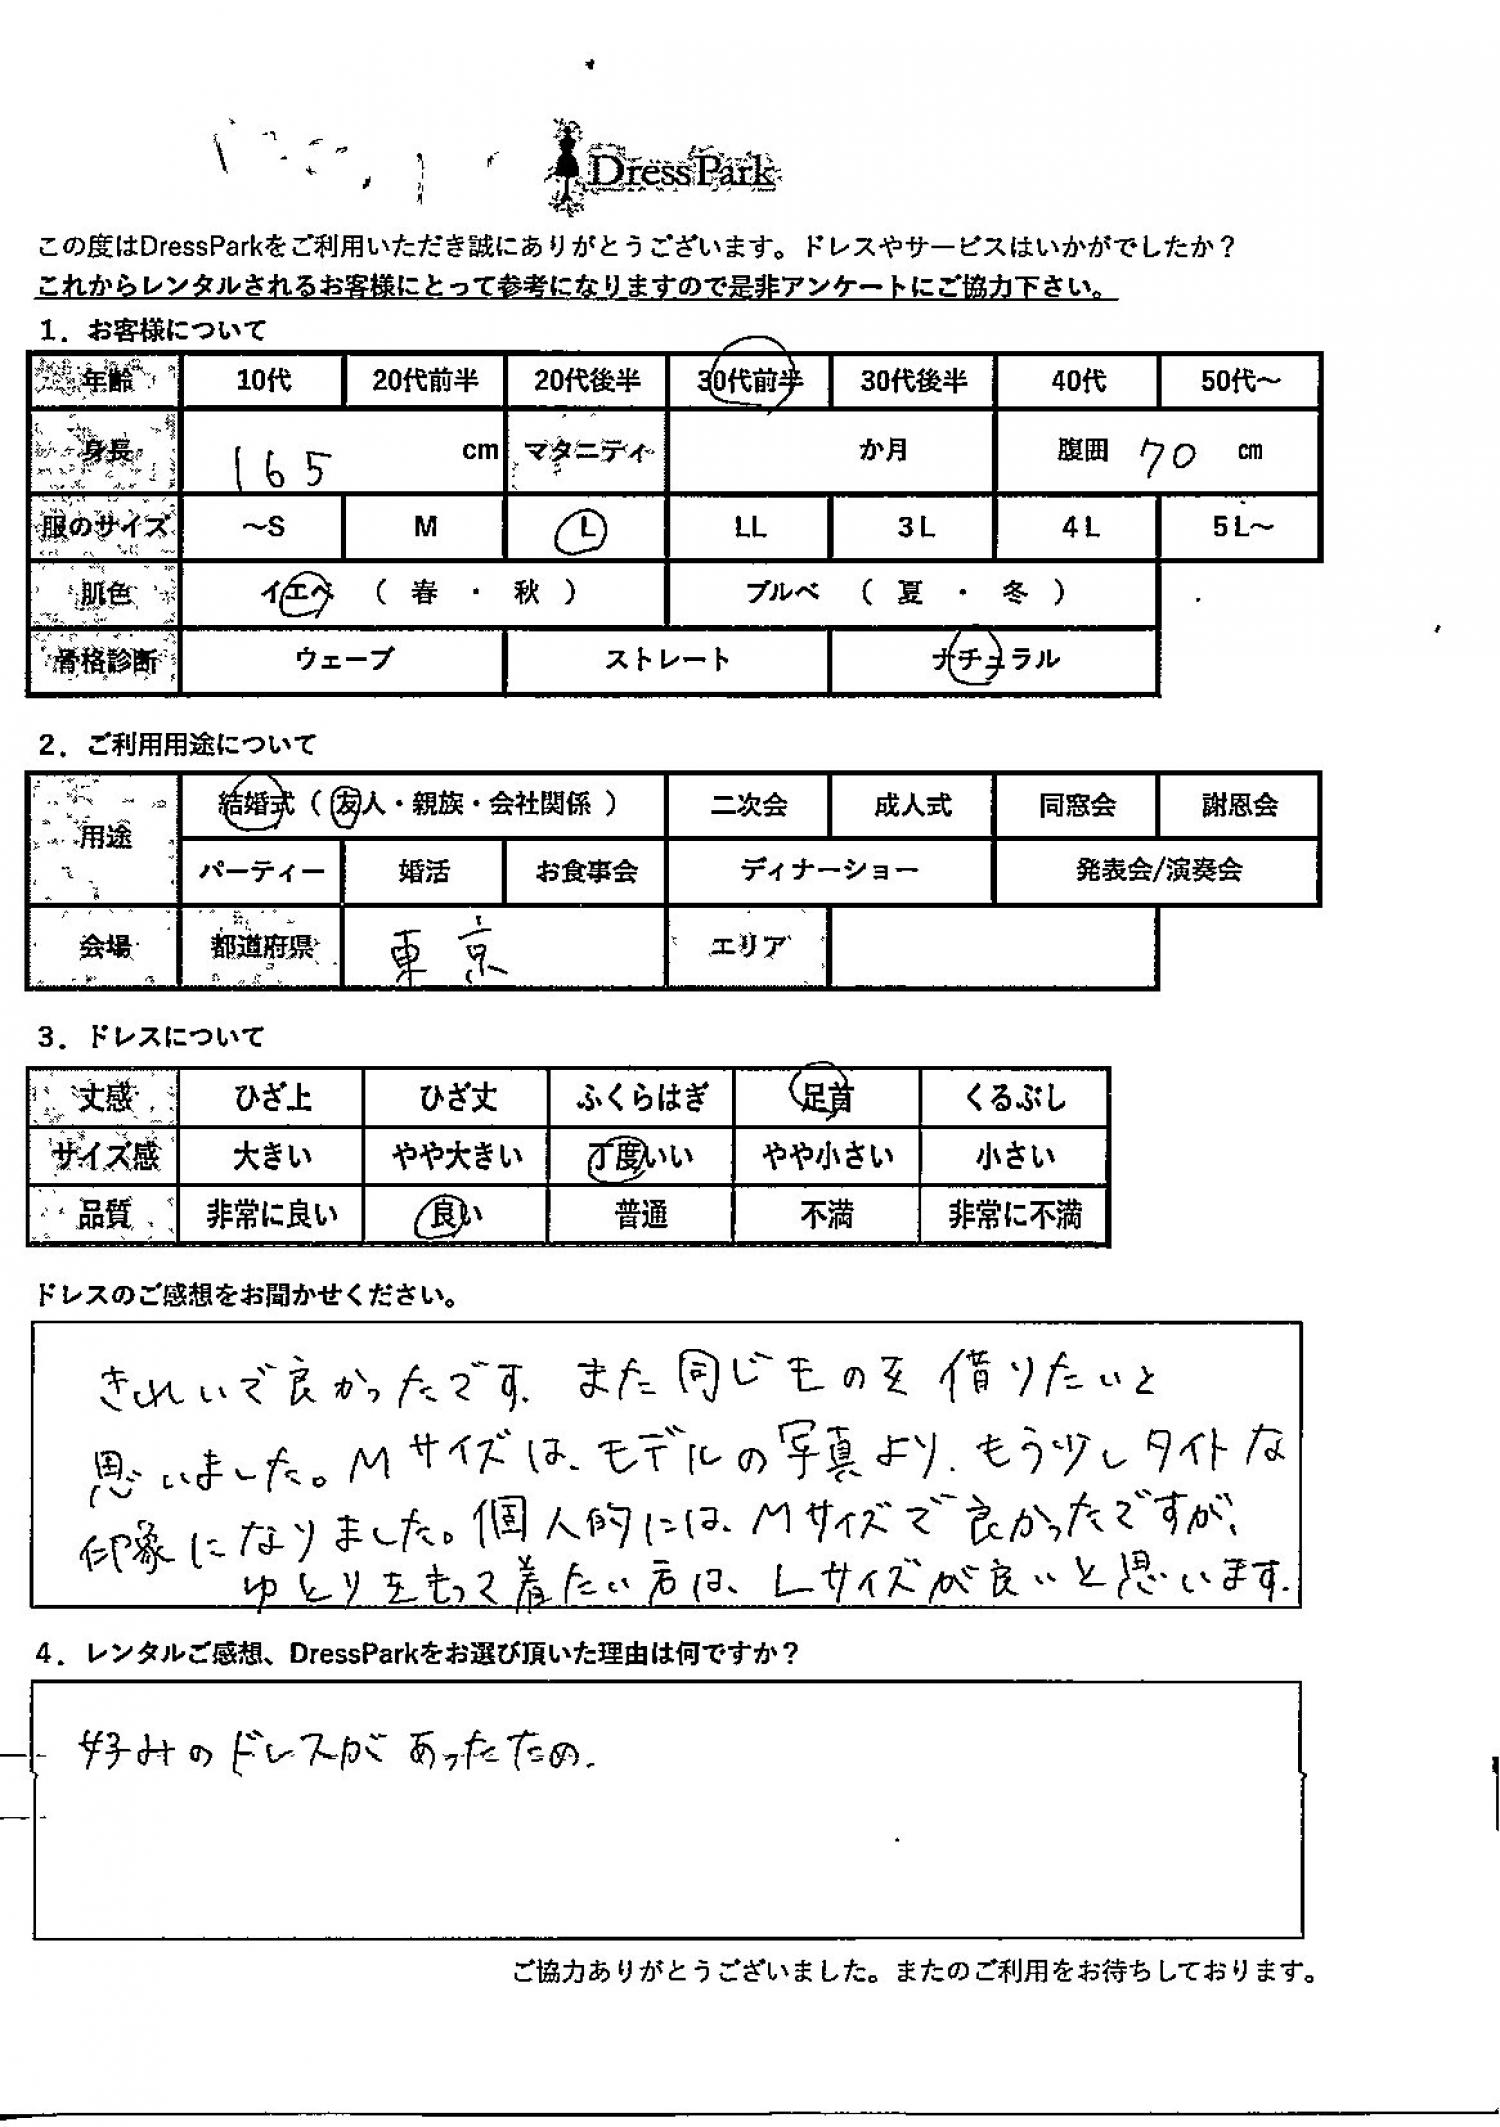 DressPark
この度はDressParkをご利用いただき誠にありがとうございます。ドレスやサービスはいかがでしたか？
これからレンタルされるお客様にとって参考になりますので是非アンケートにご協力下さい。
１．お客様について
年齢 10代 20代前半 20代後半 30代前半 30代後半 40代 50代～
身長 165 cm マタニティ か月 腹囲 70 cm
服のサイズ ～S M L LL 3L 4L 5L～
肌色 イエベ （ 春 ・ 秋 ） ブルベ （ 夏 ・ 冬 ）
骨格診断 ウェーブ ストレート ナチュラル
２．ご利用用途について
用途 結婚式（友人・親族・会社関係） 二次会 成人式 同窓会 謝恩会
パーティー 婚活 お食事会 ディナーショー 発表会/演奏会
会場 都道府県 東京 エリア
３．ドレスについて
丈感 ひざ上 ひざ丈 ふくらはぎ 足首 くるぶし
サイズ感 大きい やや大きい 丁度いい やや小さい 小さい
品質 非常に良い 良い 普通 不満 非常に不満
ドレスのご感想をお聞かせください。
きれいで良かったです。また同じものを借りたいと
思いました。Mサイズは、モデルの写真より、もう少しタイトな
印象になりました。個人的には、Mサイズで良かったですが、
ゆとりをもって着たい方は、Lサイズが良いと思います。
４．レンタルご感想、DressParkをお選び頂いた理由は何ですか？
好みのドレスがあったため。
ご協力ありがとうございました。またのご利用をお待ちしております。